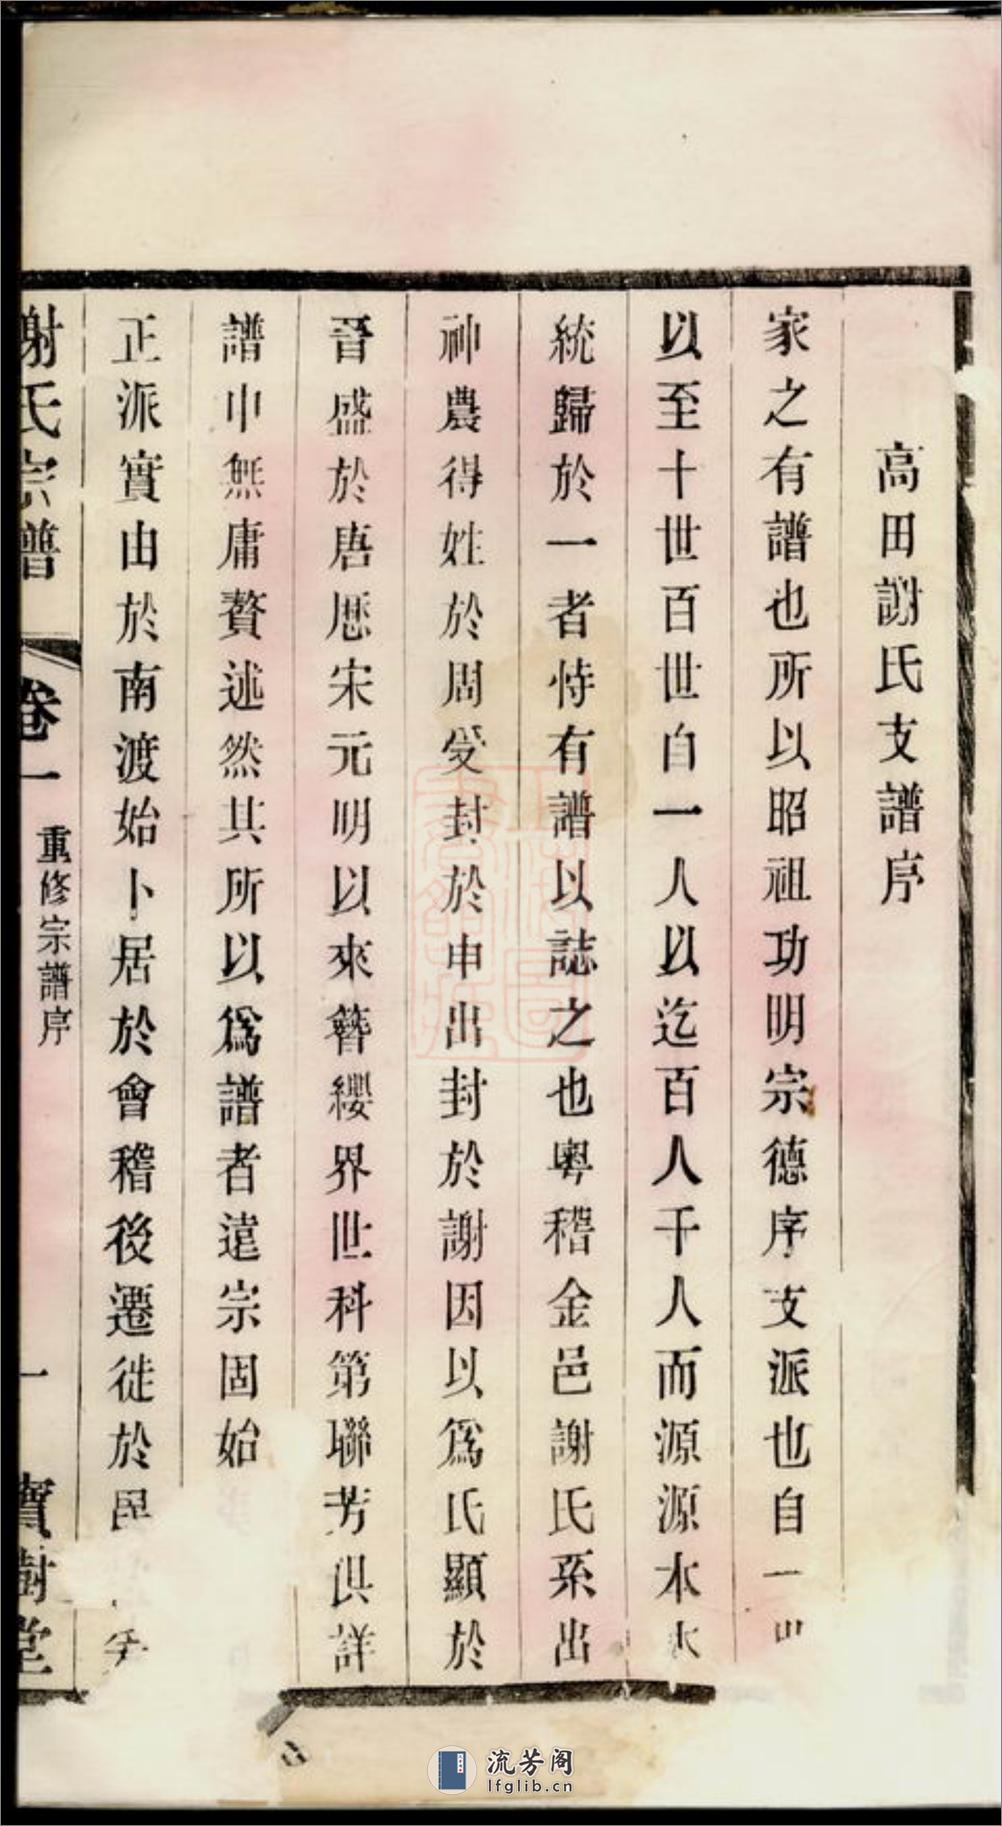 高田謝氏支譜序
家之有譜也所以昭祖功明宗德序支派也自一世
以至十世百世自一人以迄百人千人而源源本本
統歸於一者恃有譜以誌之也粵稽金邑謝氏系出
神農得姓於周受封於申出封於謝因以爲氏顯於
晉盛於唐歷宋元明以來簪纓界世科第聯芳俱詳
譜中無庸贅述然其所以爲譜者遠宗固始
正派實由於南渡始卜居於會稽後遷徙於
謝氏宗譜 卷一 重修宗譜序 一 寶樹堂
流芳阁
lfglib.cn